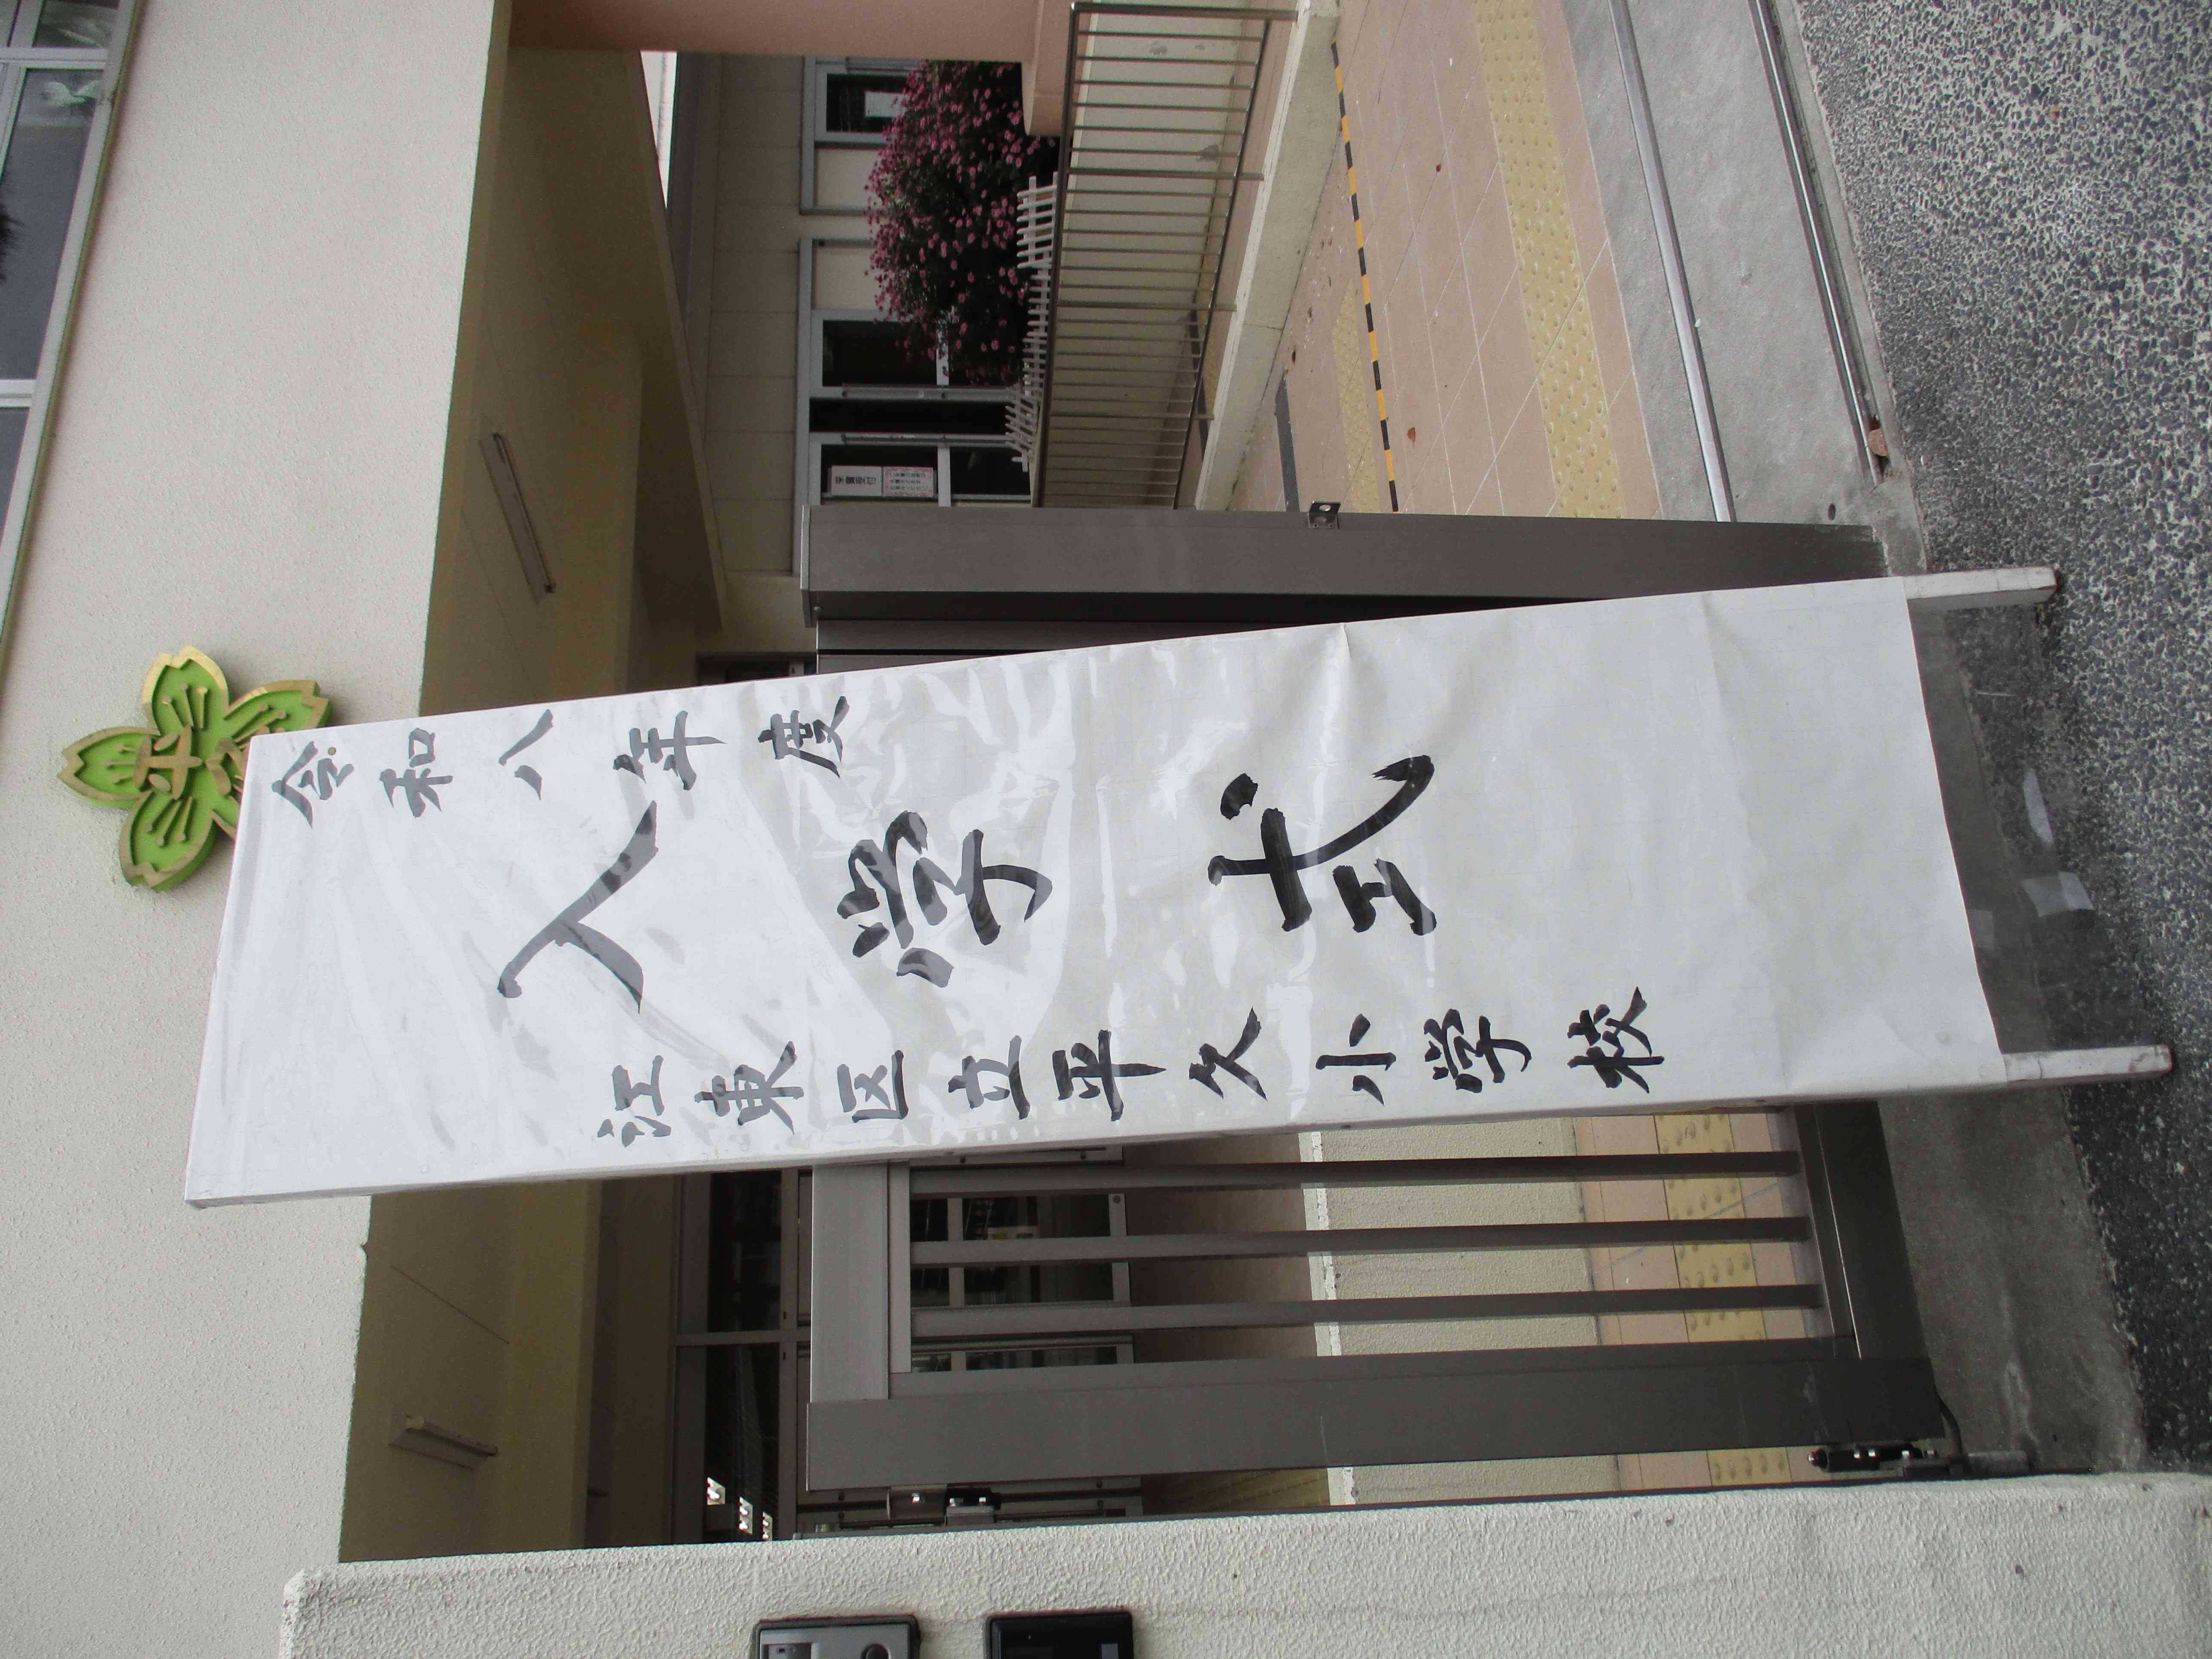 令和八年度
入学式
江東区立平久小学校
平久